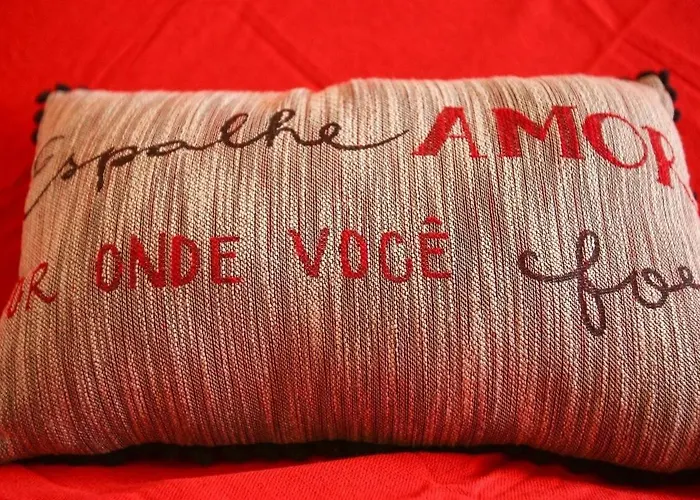 Espalhe AMOR
POR ONDE VOCÊ for